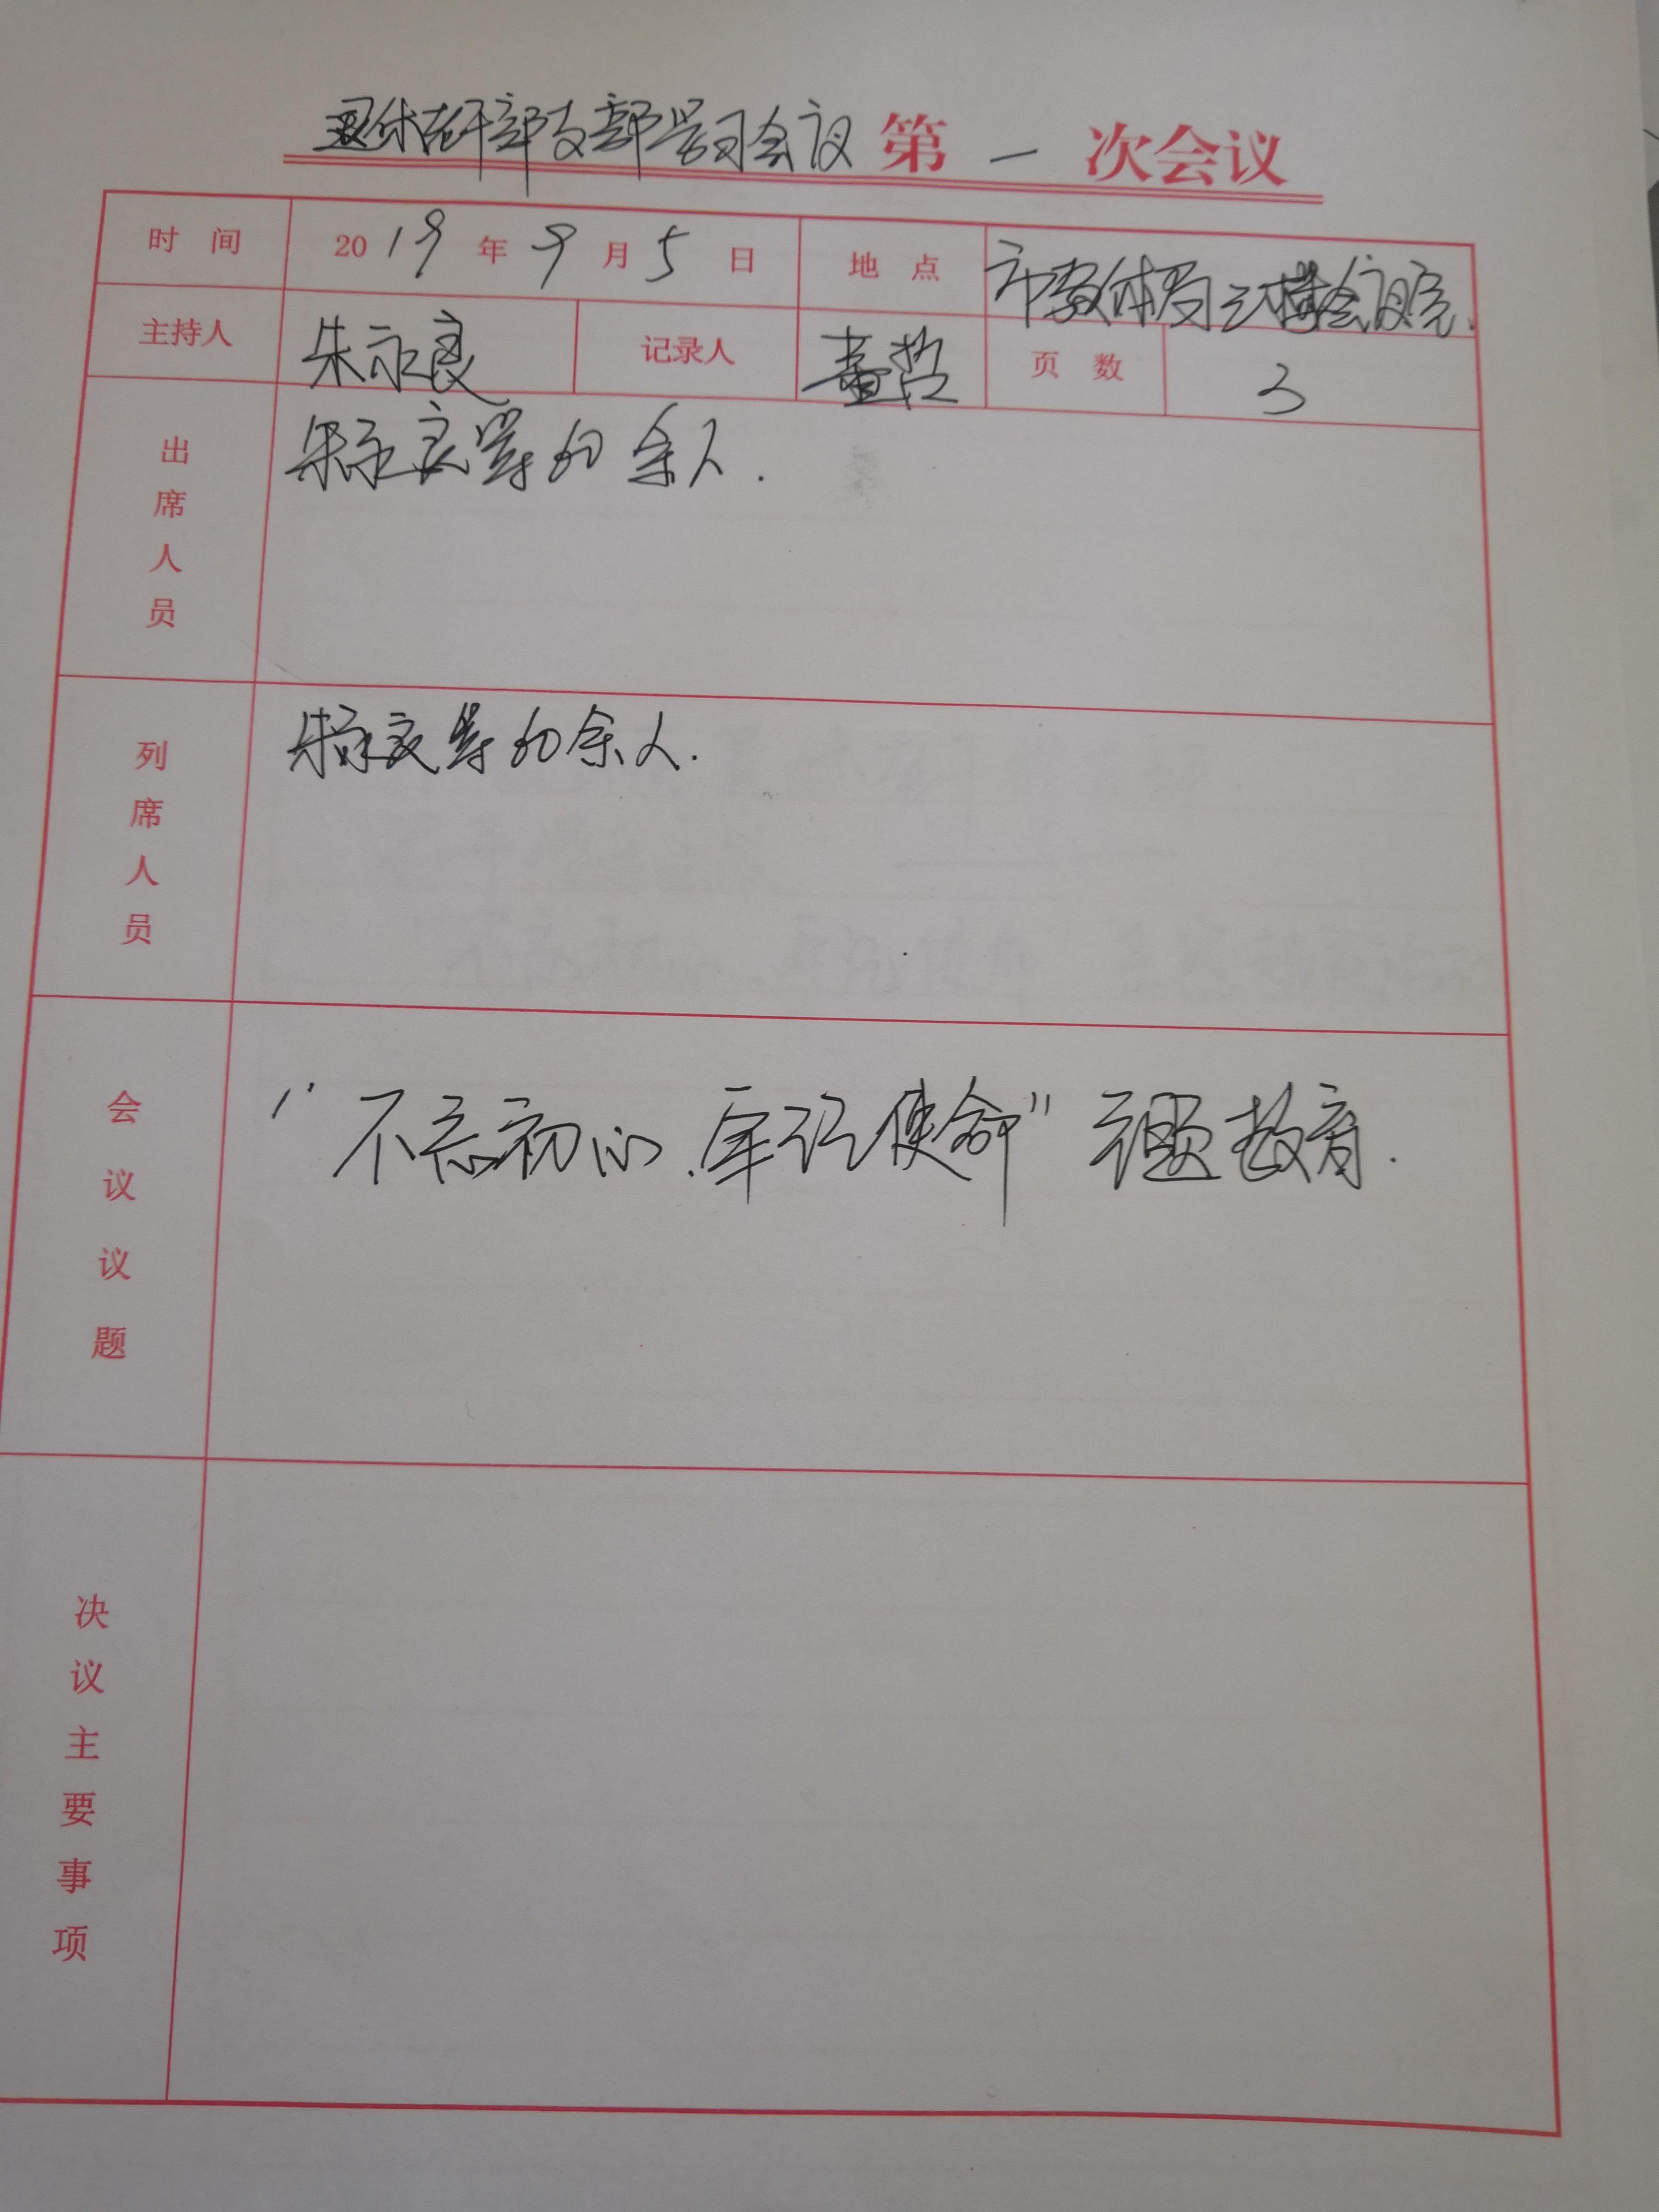 退休老干部支部学习会议 第 一 次会议
时 间 2019年9月5日 地 点 市教体局三楼会议室.
主持人 朱永良 记录人 董哲 页 数 3
出席人员 朱永良等60余人.
列席人员 朱永良等60余人.
会议议题 “不忘初心、牢记使命”主题教育.
决议主要事项